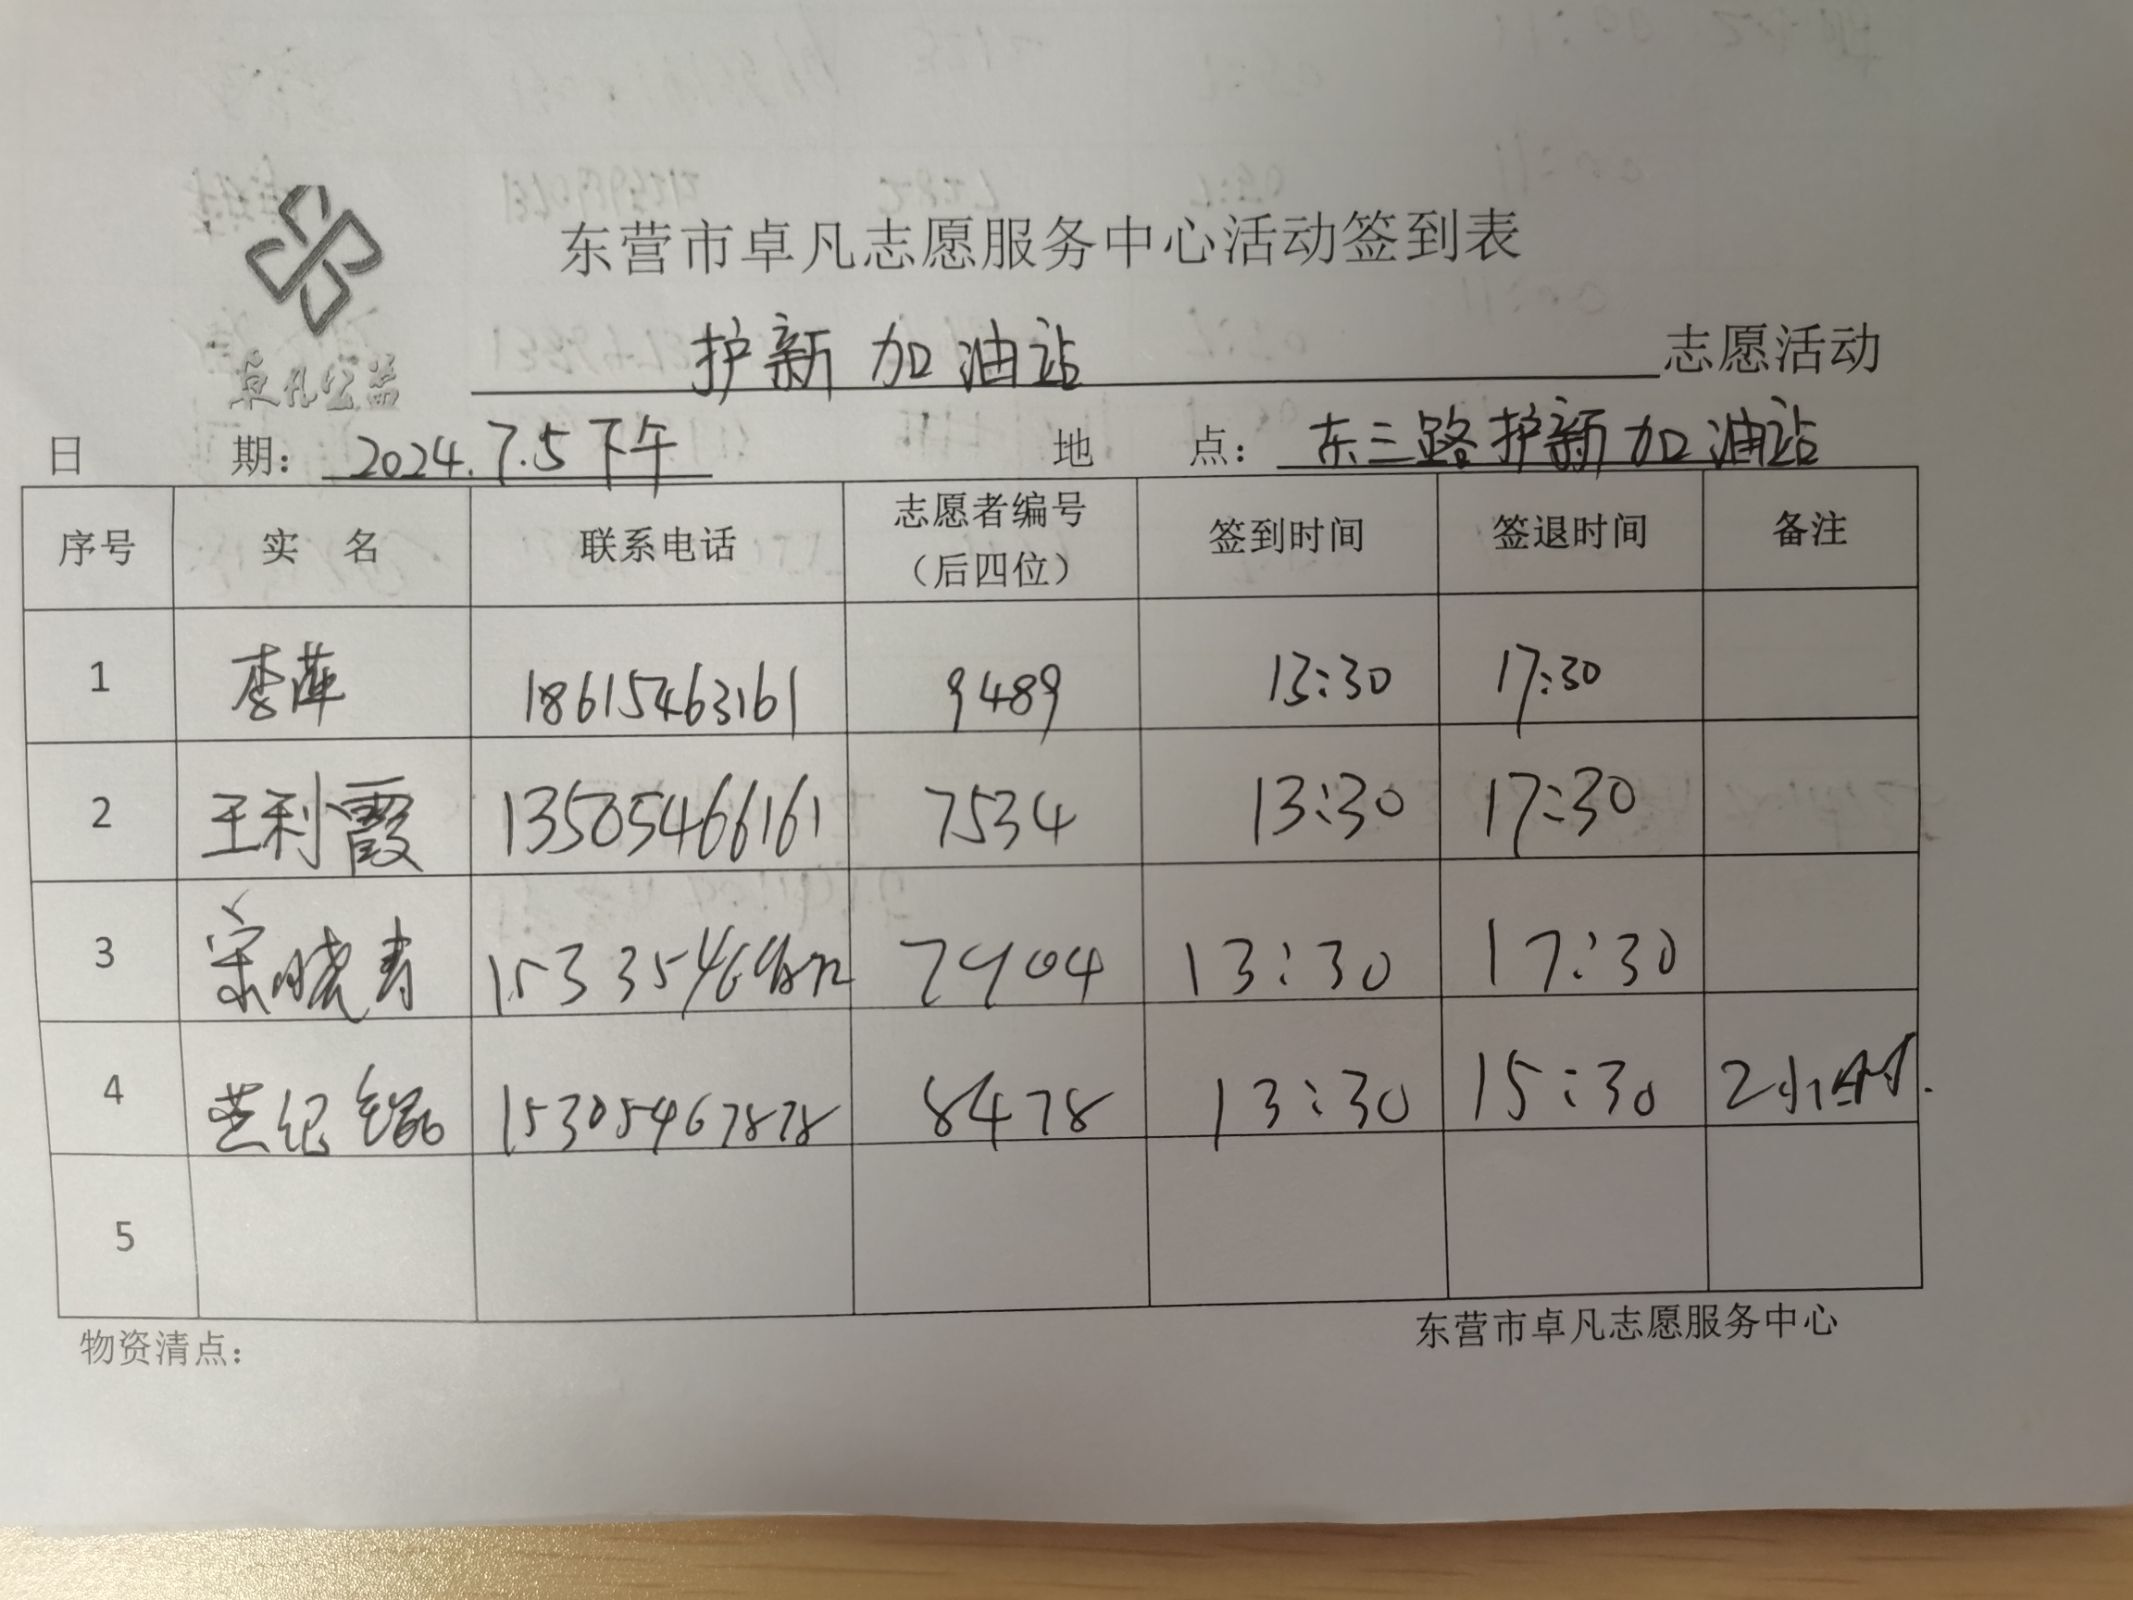 东营市卓凡志愿服务中心活动签到表
卓凡公益
护新加油站 志愿活动
日期：2024.7.5下午 地点：东三路护新加油站
序号 实名 联系电话 志愿者编号（后四位） 签到时间 签退时间 备注
1 李萍 18615463161 9489 13:30 17:30
2 王利霞 13505466161 7534 13:30 17:30
3 宋晓寿 7904 13:30 17:30
4 15305467878 8478 13:30 15:30 2小时.
5
物资清点：
东营市卓凡志愿服务中心